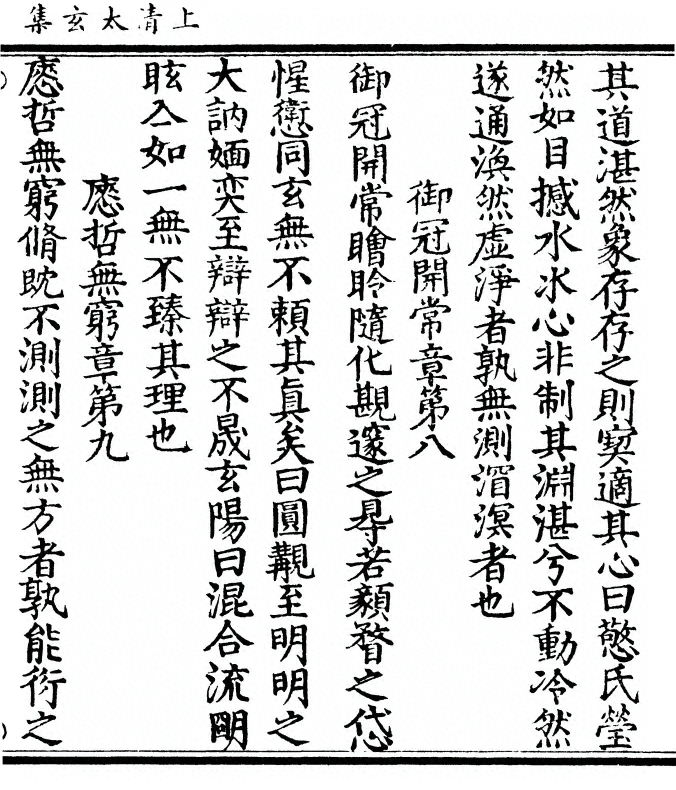 上清太玄集
其道湛然象存存之則窫適其心曰憨氏瑩
然如目撼水水心非制其淵湛兮不動冷然
遂通渙然虛淨者孰無測湣溟者也
御冠開常章第八
御冠開常矒聆隨化觀邃之㝵若顏瞀之俗
惺懲同玄無不賴其眞矣曰圓覯至明明之
大訥媔奕至辯辯之不晟玄陽曰混合流明
眩亼如一無不臻其理也
應哲無窮章第九
應哲無窮脩旣不測測之無方者孰能衍之